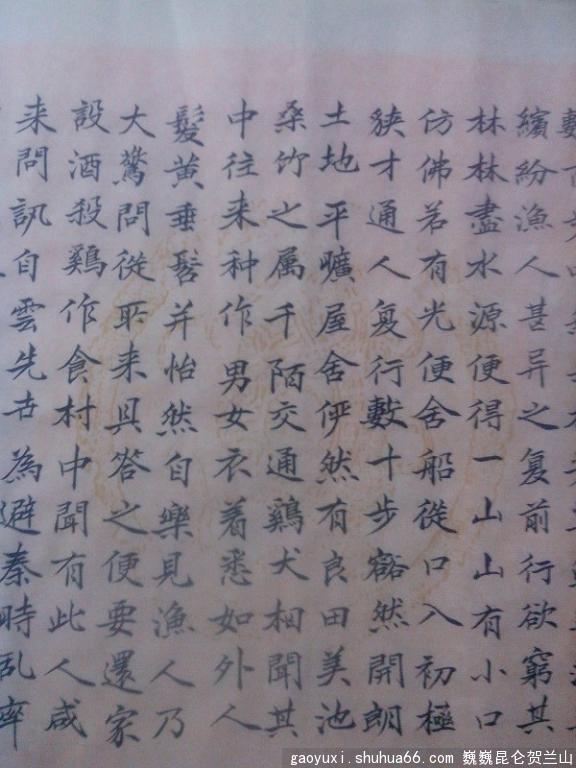 繽紛漁人甚异之复前行欲窮其
林林盡水源便得一山山有小口
仿佛若有光便舍船從口入初極
狹才通人复行數十步豁然開朗
土地平曠屋舍俨然有良田美池
桑竹之属千陌交通鷄犬相聞其
中往来种作男女衣着悉如外人
髮黄垂髫并怡然自樂見漁人乃
大驚問從所来具答之便要還家
設酒殺鷄作食村中聞有此人咸
来問訊自雲先世為避秦時乱率
gaoyuxi.shuhua66.com 巍巍昆仑贺兰山